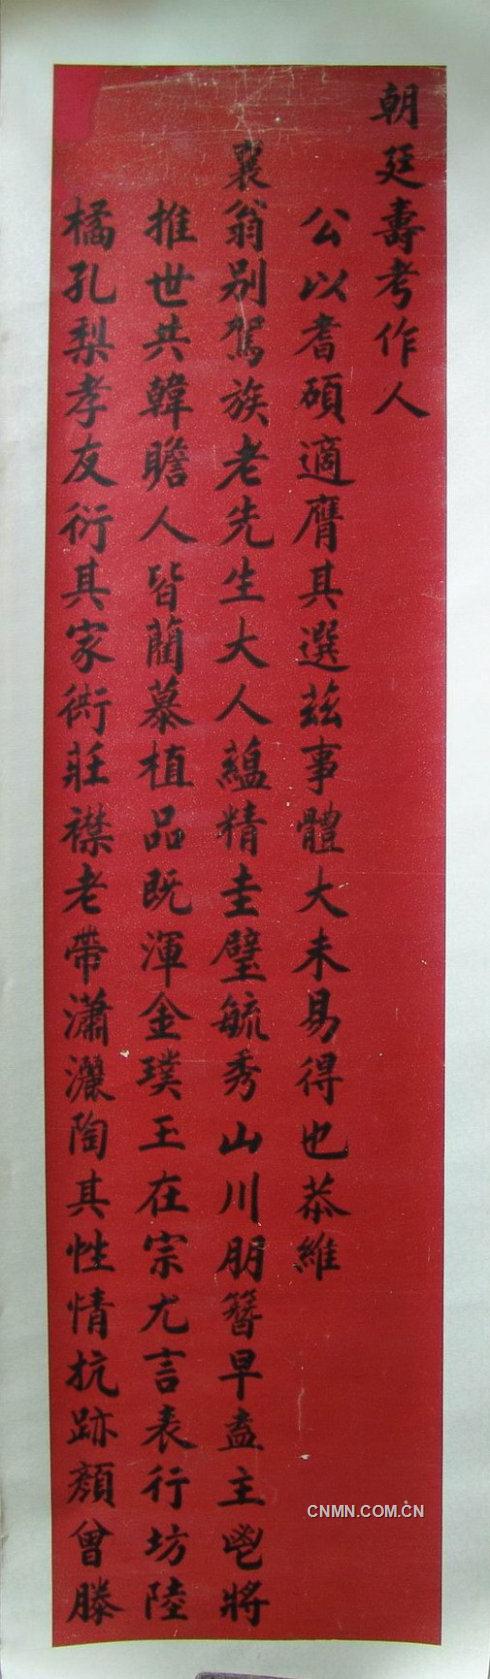 朝廷壽考作人
公以耆碩適膺其選茲事體大未易得也恭維
襄翁別駕族老先生大人蘊精圭璧毓秀山川朋簪早盍主鬯將
推世共韓瞻人皆藺慕植品既渾金璞玉在宗尤言表行坊陸
橘孔梨孝友衍其家衖莊襟老帶瀟灑陶其性情抗跡顏曾賸
CNMN.COM.CN